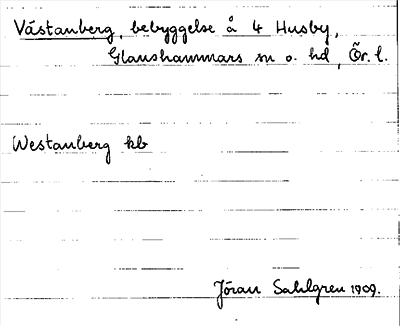 Västanberg, bebyggelse å 4 Husby,
Glanshammars sn o. hd, Ör. l.
Westanberg kb
Jöran Sahlgren 1909.